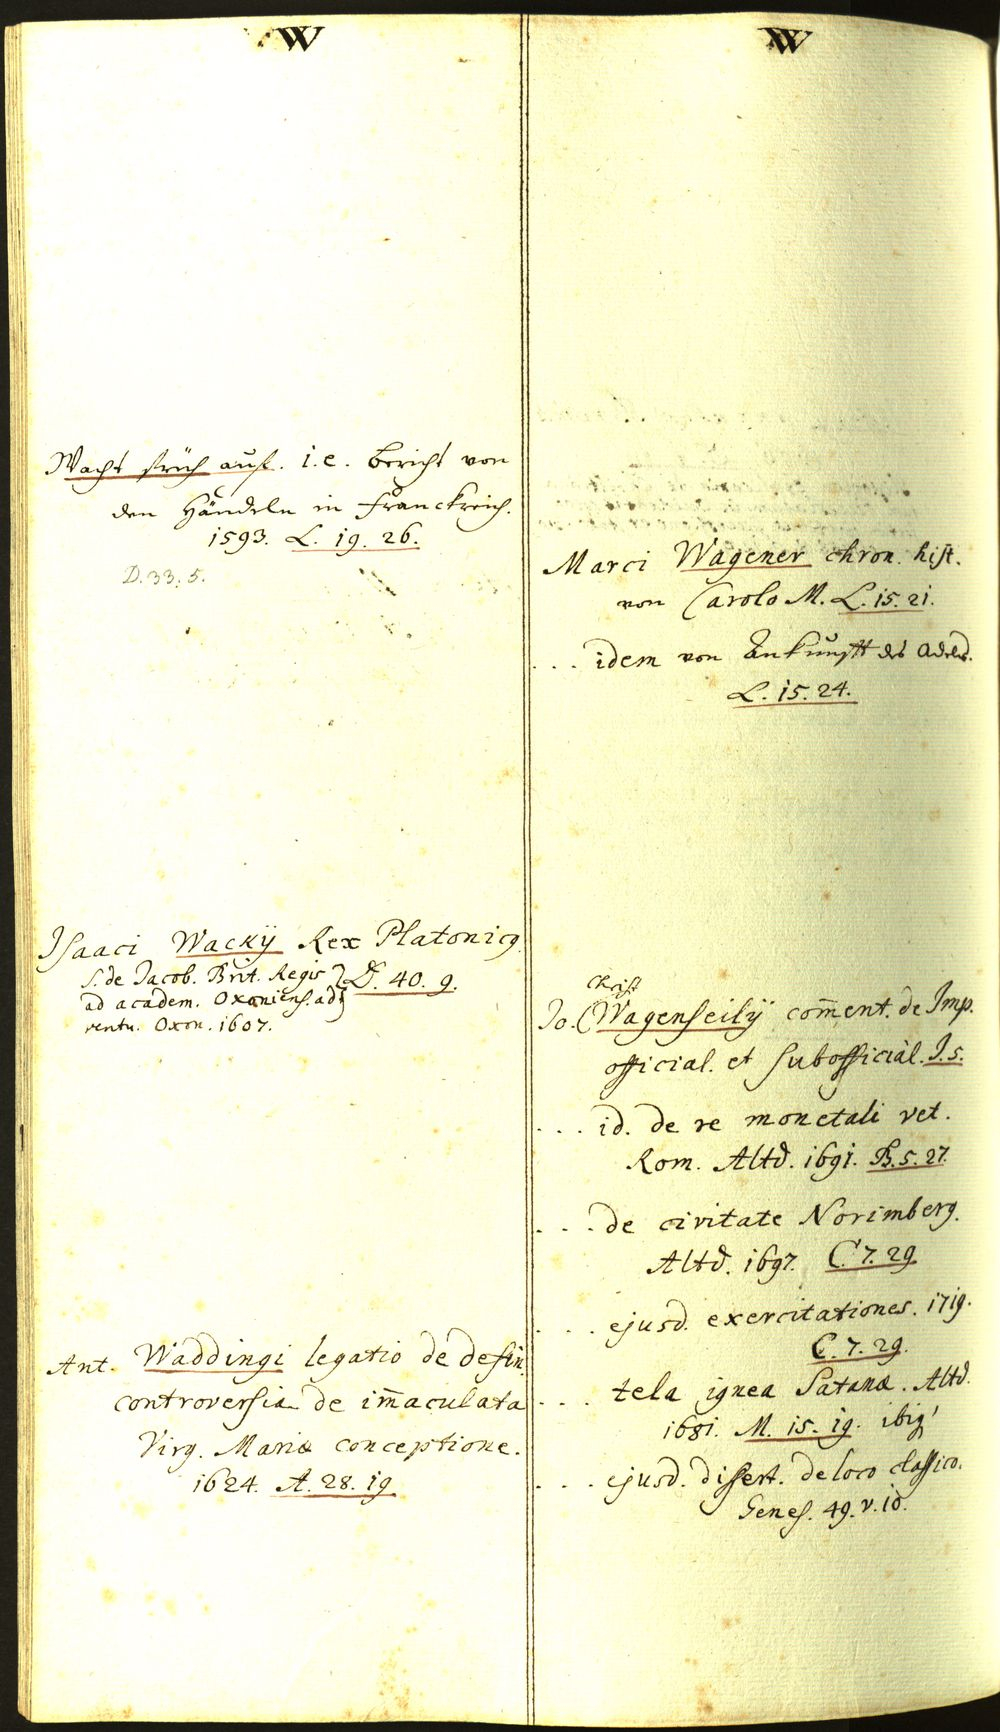 W
Wacht früh auf. i.e. bericht von
den Händeln in Franckreich.
1593. L. 19. 26.
D. 33. 5.
Isaaci Wackij Rex Platonicq
s. de Jacob. Brit. Regis
ad academ. Oxoniens. ad
ventu. Oxon. 1607.
D. 40. 9.
Ant. Waddingi legatio de defin.
controversia de im̄aculata
Virg. Mariæ conceptione.
1624. A. 28. 19
W
Marci Wagener chron. hist.
von Carolo M. L. 15. 21.
... idem von Ankunfft des Adels.
L. 15. 24.
Christ
Jo. (Wagenseilij com̄ent. de Imp.
official. et subofficial. J. 5.
... id. de re monetali vet.
Rom. Altd. 1691. B. 5. 27.
... de civitate Norimberg.
Altd. 1697. C. 7. 29
... ejusd. exercitationes. 1719.
C. 7. 29.
... tela ignea Satanæ. Altd.
1681. M. 15. 19.
... ejusd. dissert. de loco classico.
Genes. 49. v. 10.